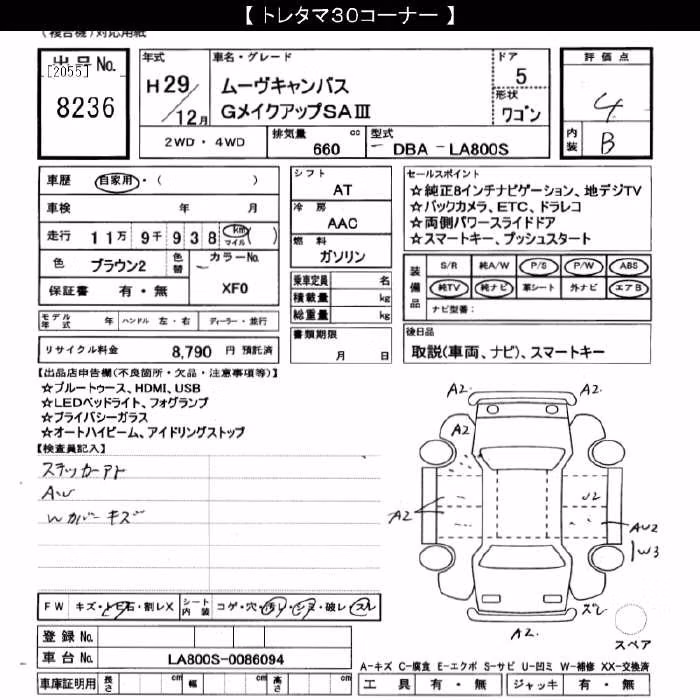 【 トレタマ30コーナー 】
(複合機)対応用紙
出品No.
[2055]
8236
年式
H29/12月
車名・グレード
ムーヴキャンバス
GメイクアップSAⅢ
ドア
5
形状
ワゴン
評価点
4
内装
B
2WD ・ 4WD
排気量
660 cc
型式
DBA - LA800S
車歴 自家用・( )
車検 年 月
走行 11万9千938 km マイル ( )
色 ブラウン2 色替 カラーNo.
XF0
保証書 有・無
モデル年式 年 ハンドル 左・右 ディーラー・並行
リサイクル料金 8,790 円 預託済
シフト
AT
冷房
AAC
燃料
ガソリン
乗車定員 名
積載量 kg
総重量 kg
書類期限
月 日
セールスポイント
☆純正8インチナビゲーション、地デジTV
☆バックカメラ、ETC、ドラレコ
☆両側パワースライドドア
☆スマートキー、プッシュスタート
装備品
S/R 純A/W P/S P/W ABS
純TV 純ナビ 革シート 外ナビ エアB
ナビ型番:
後日品
取説(車両、ナビ)、スマートキー
【出品店申告欄(不良箇所・欠品・注意事項等)】
☆ブルートゥース、HDMI、USB
☆LEDヘッドライト、フォグランプ
☆プライバシーガラス
☆オートハイビーム、アイドリングストップ
【検査員記入】
ステッカーアト
AW
Wカバーキズ
A2 A2
A2
A2
U2
AU2
W3
ズレ
A2
スペア
FW キズ・トビ石・割レX シート内装 コゲ・穴・汚レ・シミ・破レ・スレ
登録No.
車台No. LA800S-0086094
車庫証明用 長さ cm 幅 cm 高さ cm
A-キズ C-腐食 E-エクボ S-サビ U-凹ミ W-補修 XX-交換済
工具 有・無 ジャッキ 有・無